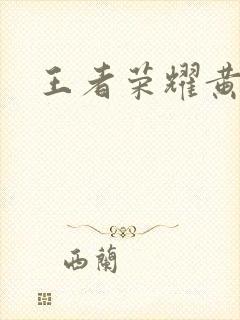 王者荣耀黄
西蘭